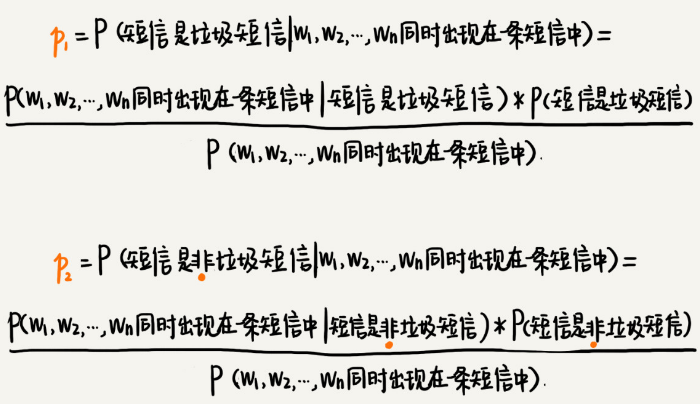 p₁ = P (短信是垃圾短信|W₁,W₂,…,Wn同时出现在一条短信中) =
P(W₁,W₂,…,Wn同时出现在一条短信中|短信是垃圾短信) * P(短信是垃圾短信)
P (W₁,W₂,…,Wn同时出现在一条短信中).
p₂ = P (短信是非垃圾短信|W₁,W₂,…,Wn同时出现在一条短信中) =
P(W₁,W₂,…,Wn同时出现在一条短信中|短信是非垃圾短信) * P(短信是非垃圾短信)
P (W₁,W₂,…,Wn同时出现在一条短信中).